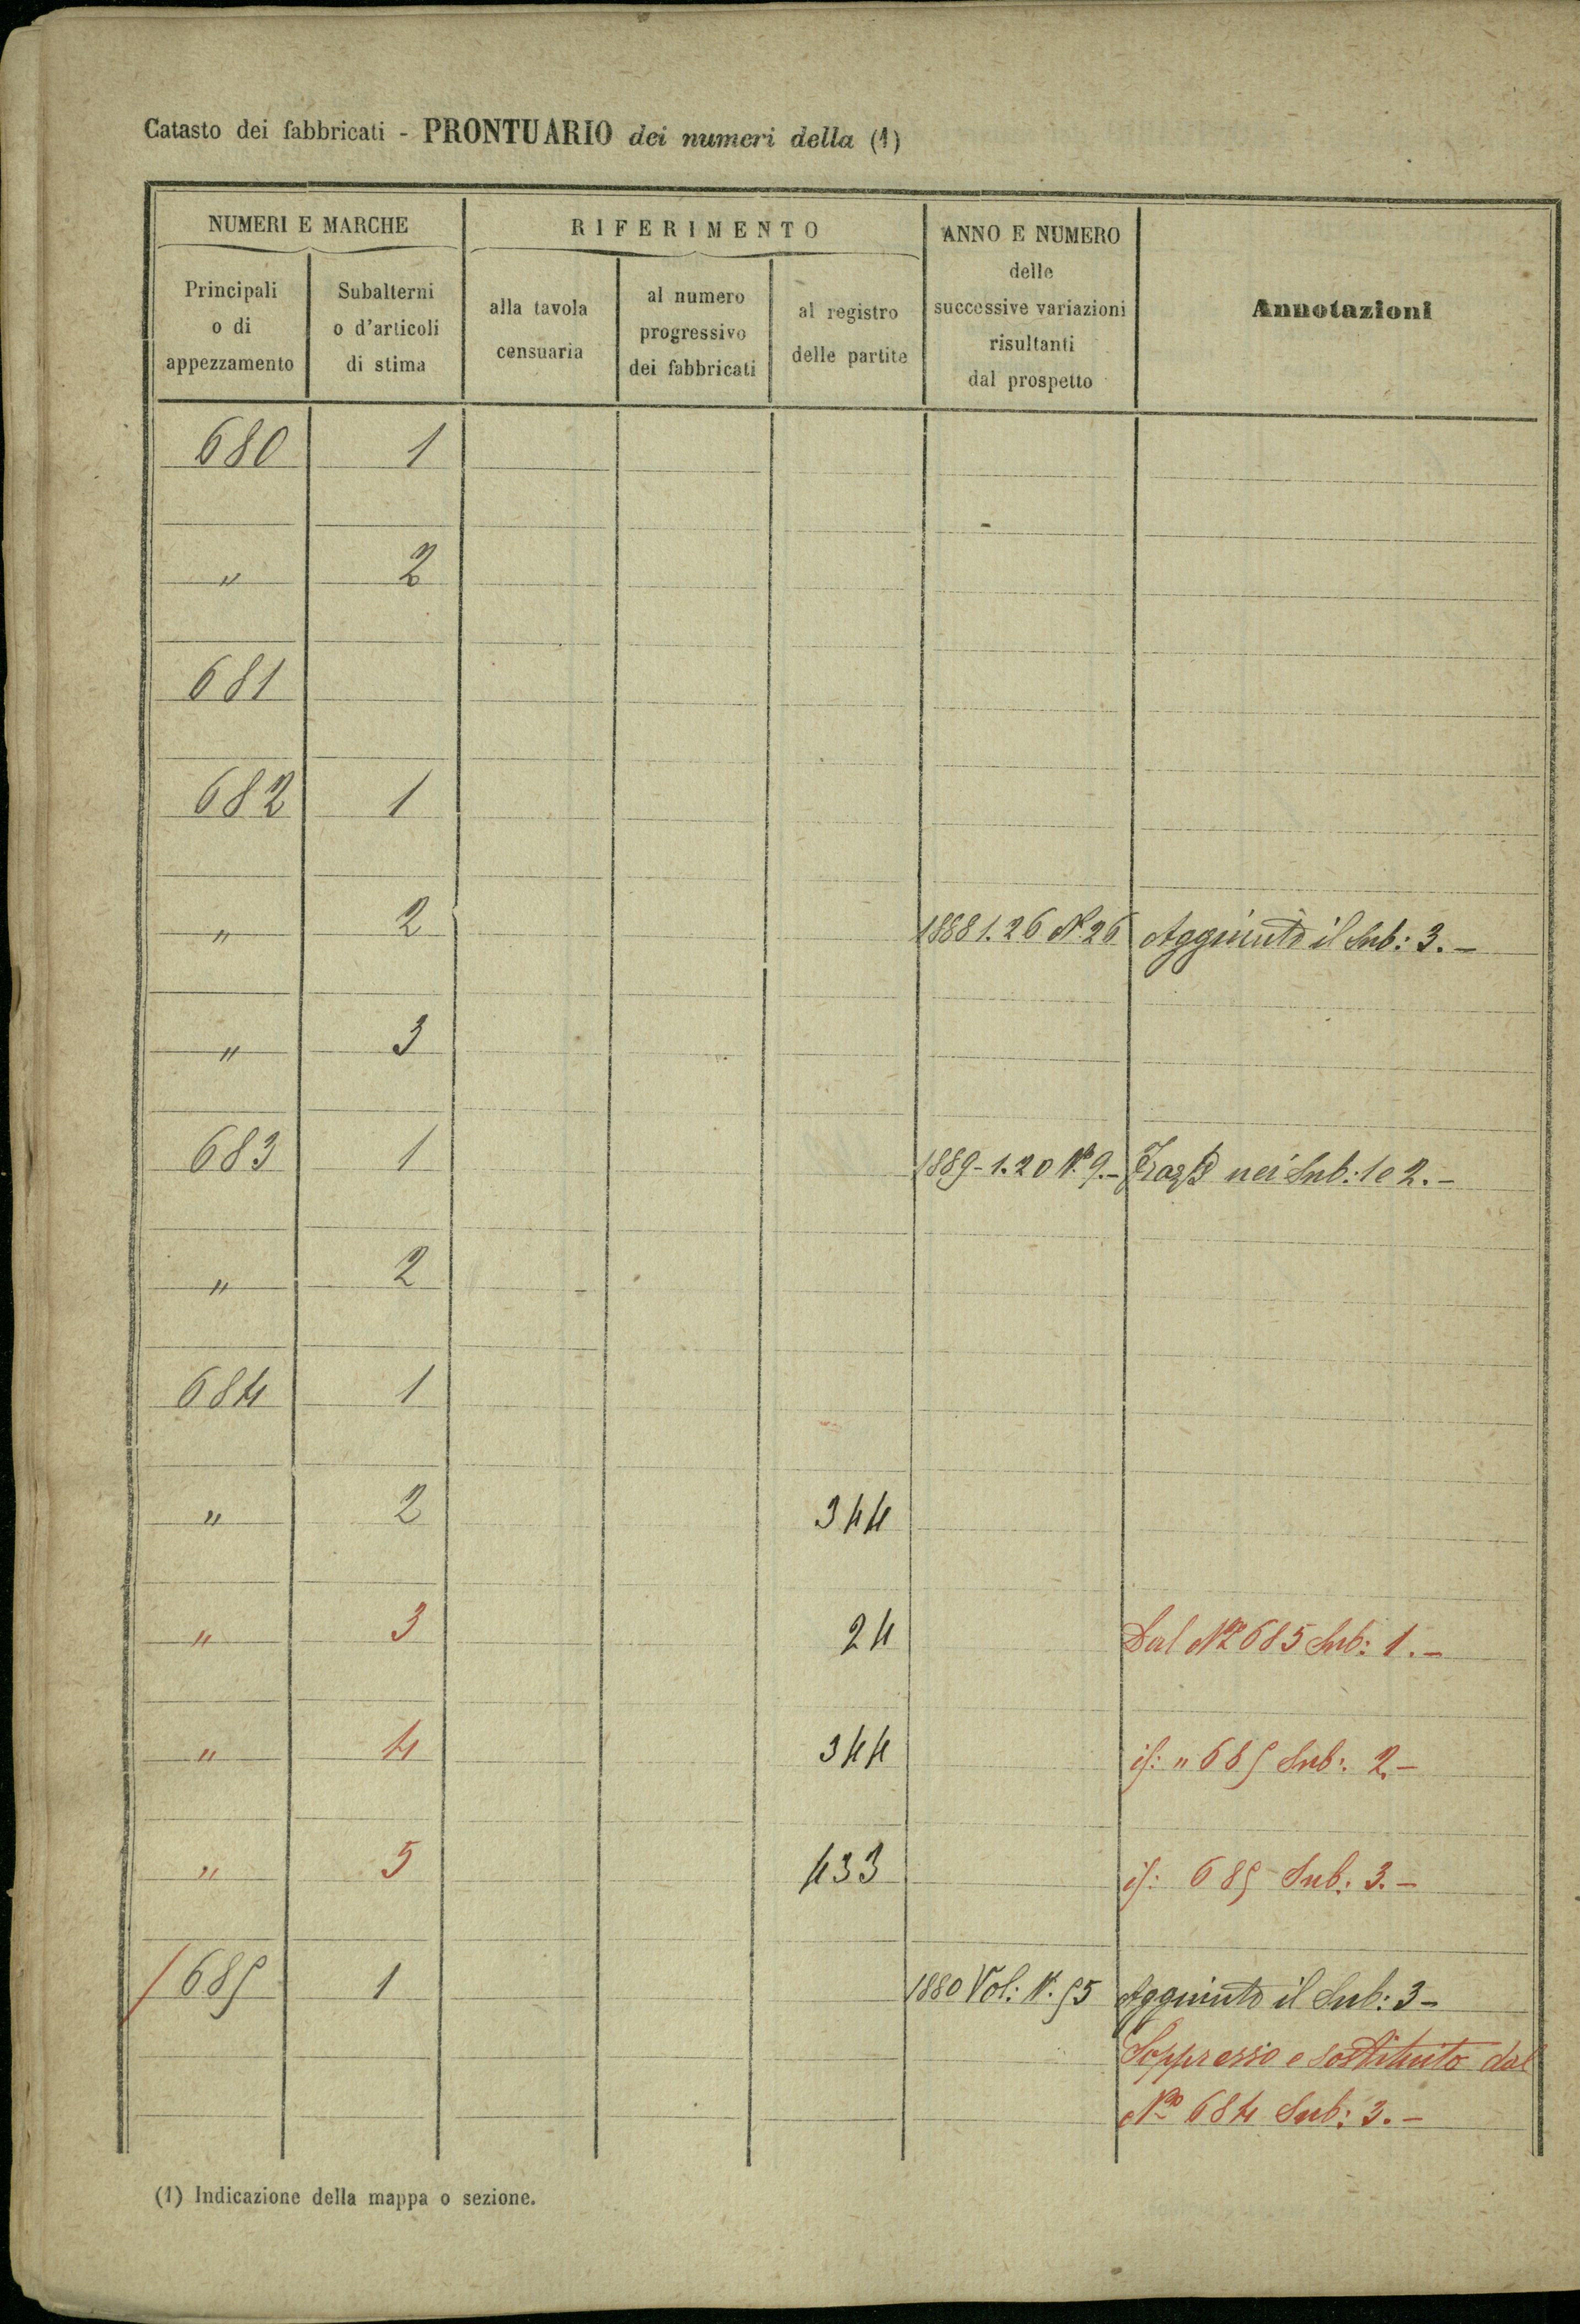 Catasto dei fabbricati - PRONTUARIO dei numeri della (1)
NUMERI E MARCHE
RIFERIMENTO
ANNO E NUMERO
delle
successive variazioni
risultanti
dal prospetto
Annotazioni
Principali
o di
appezzamento
Subalterni
o d'articoli
di stima
alla tavola
censuaria
al numero
progressivo
dei fabbricati
al registro
delle partite
680 1
" 2
681
682 1
" 2 1888 1.26 N. 26 Aggiunto il Sub: 3.-
" 3
683 1 1889-1.20 N. 9.- nei Sub: 1 e 2.-
" 2
684 1
" 2 344
" 3 24 Dal No 685 Sub: 1.-
" 4 344 " 685 Sub: 2-
" 5 433 685 Sub: 3.-
685 1 1880 Vol: N. 55 Aggiunto il Sub: 3-
Soppresso e sostituito dal
No 684 Sub: 3.-
(1) Indicazione della mappa o sezione.